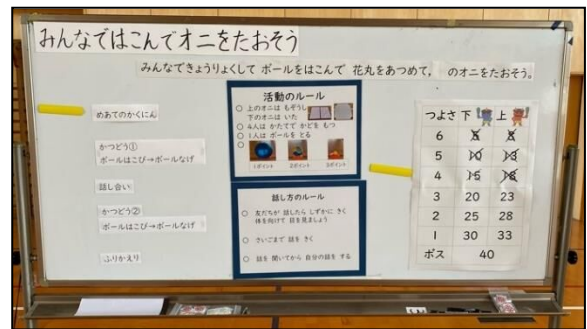 みんなではこんでオニをたおそう
みんなできょうりょくして ボールをはこんで 花丸をあつめて, のオニをたおそう。
めあてのかくにん
かつどう①
ボールはこび→ボールなげ
話し合い
かつどう②
ボールはこび→ボールなげ
ふりかえり
活動のルール
○ 上のオニは もぞうし
下のオニは いた
○ 4人は かたてで かどを もつ
○ 1人は ボールを とる
○
1ポイント 2ポイント 3ポイント
話し方のルール
○ 友だちが 話したら しずかに きく
体を向けて 目を見ましょう
○ さいごまで 話を きく
○ 話を 聞いてから 自分の話を する
つよさ 下 上
6 5 8
5 10 13
4 15 18
3 20 23
2 25 28
1 30 33
ボス 40